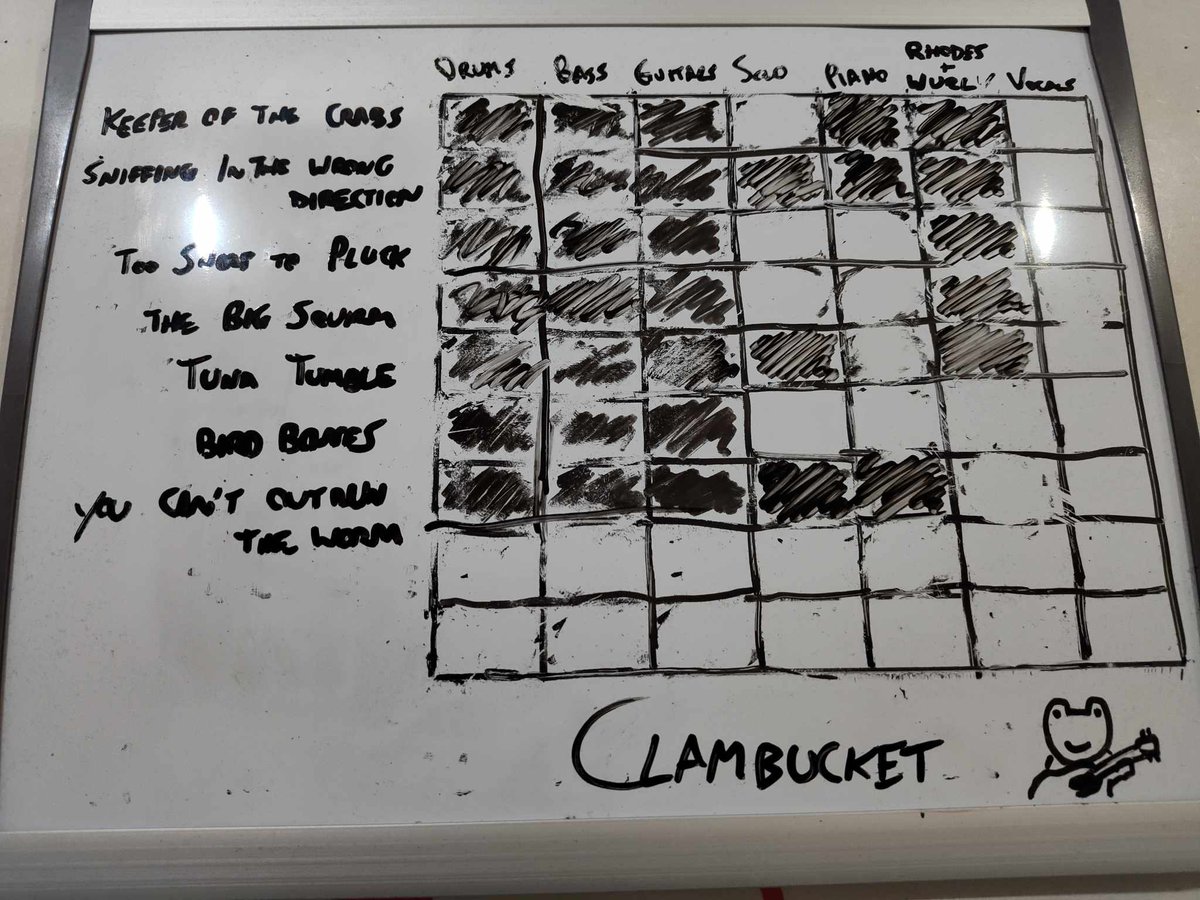 DRUMS BASS GUITARS SOLO PIANO RHODES + WURLY VOCALS
KEEPER OF THE CRABS
SNIFFING IN THE WRONG
DIRECTION
TOO SHORT TO PLUCK
THE BIG SQUIRM
TUNA TUMBLE
BIRD BONES
YOU CAN'T OUTRUN
THE WORM
CLAMBUCKET